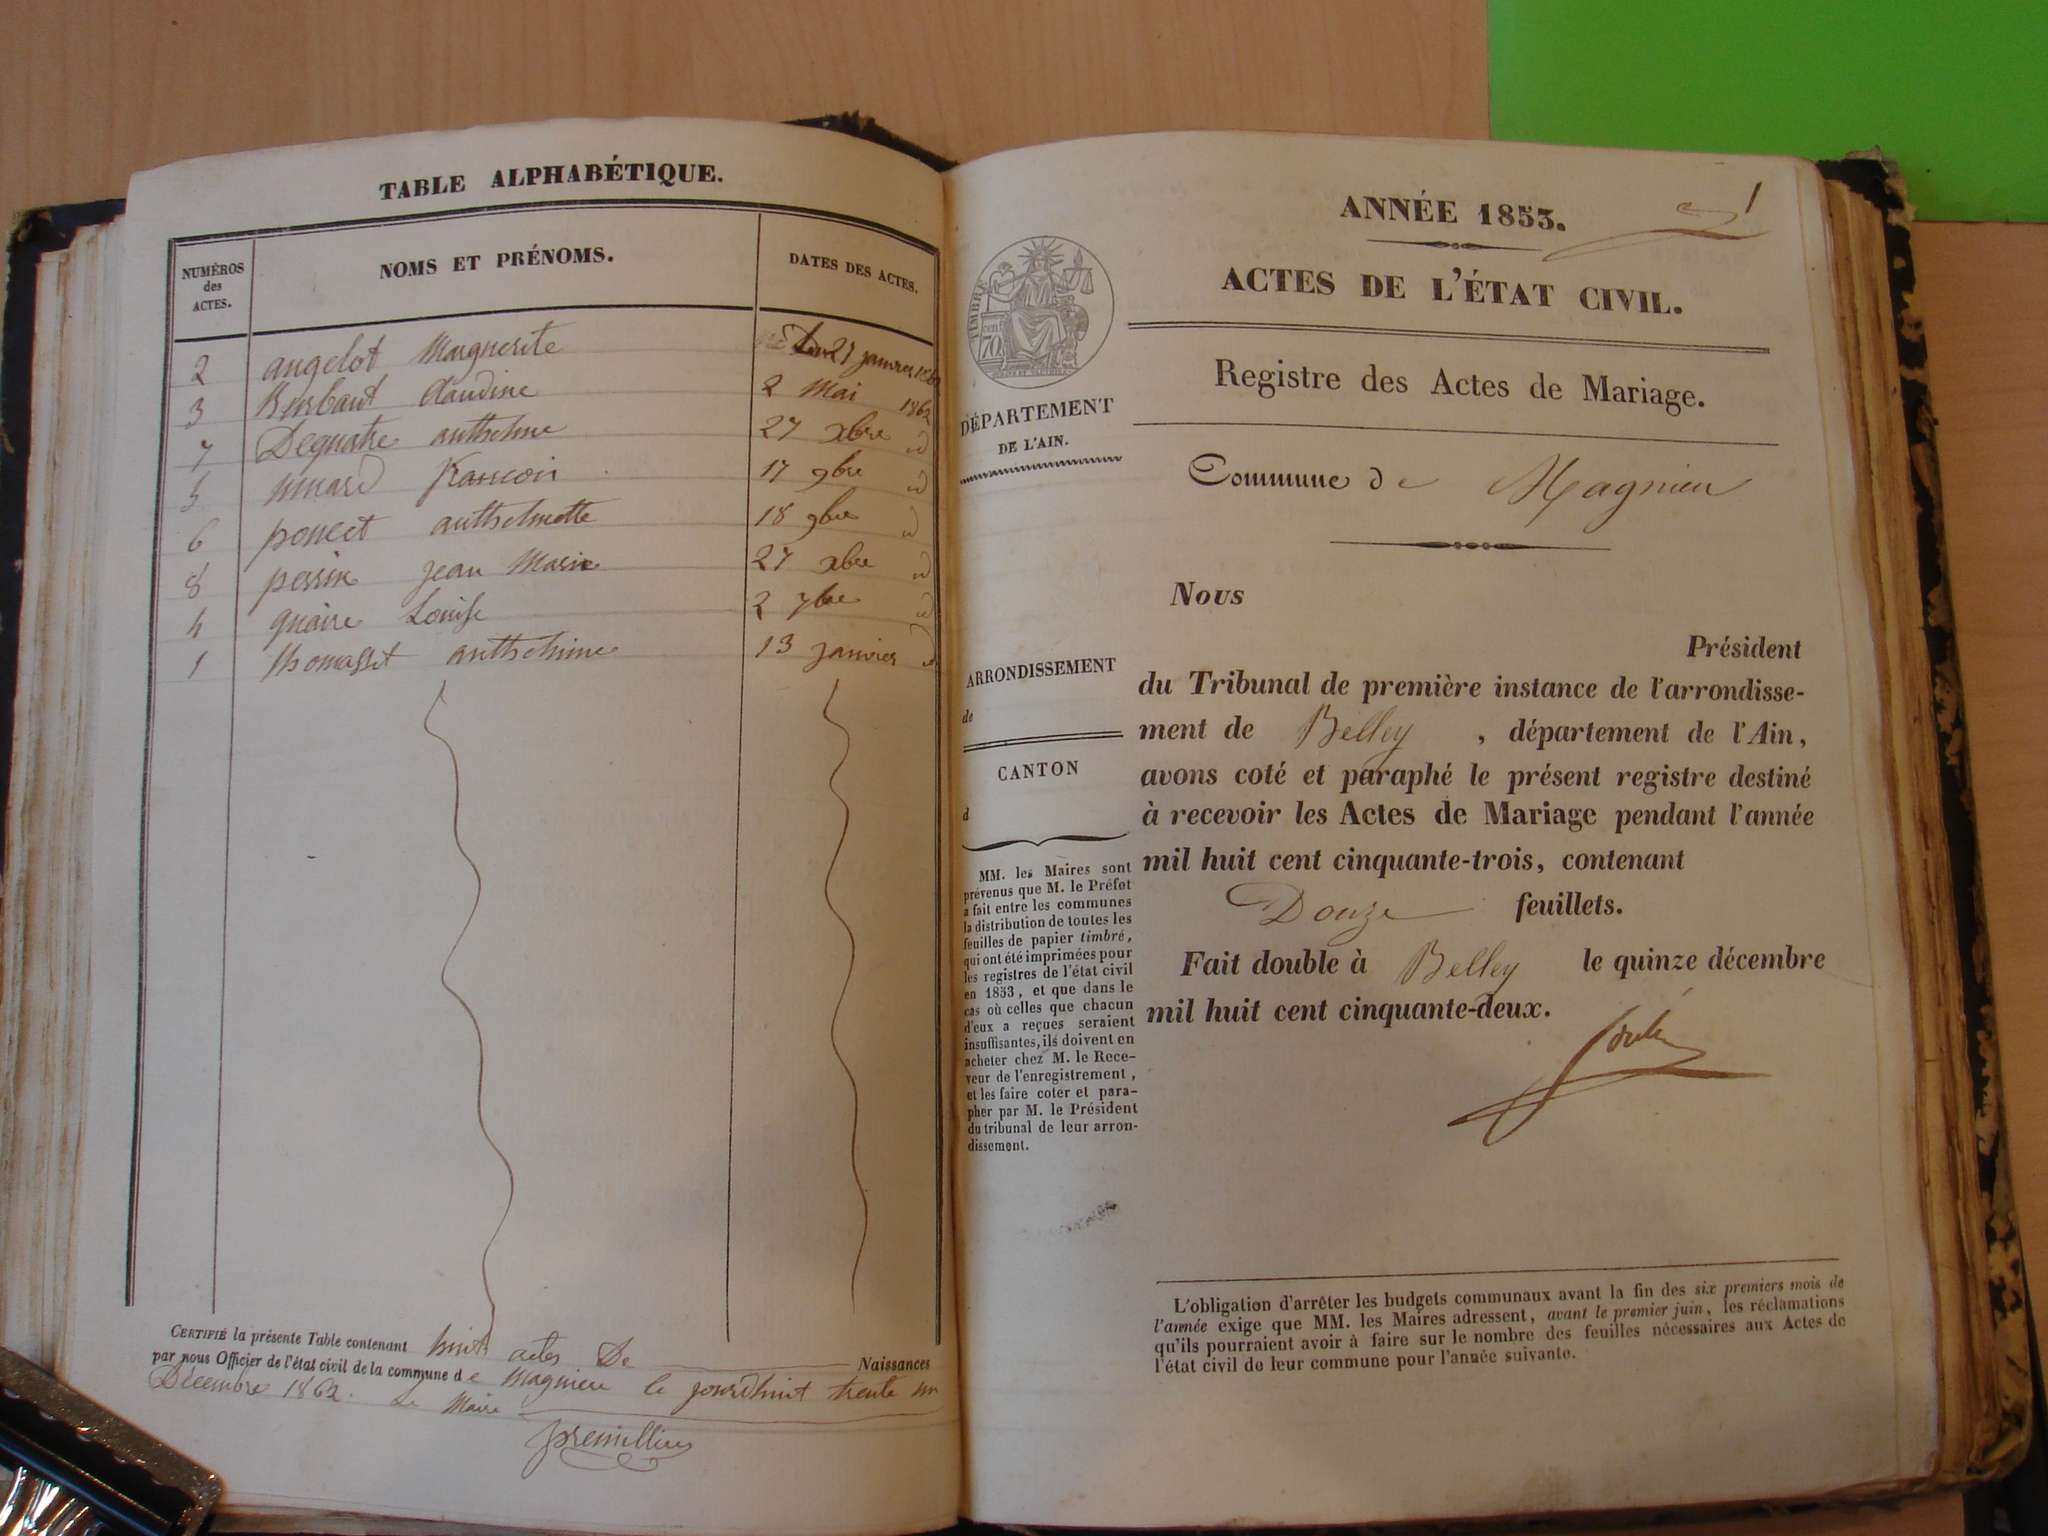 TABLE ALPHABÉTIQUE.
NUMÉROS
des
ACTES.
NOMS ET PRÉNOMS.
DATES DES ACTES.
2 angelot Marguerite 21 janvier 1862
3 Claudine 2 Mai 1862
7 Dequatre anthelme 27 xbre id
5 françois 17 9bre id
6 poncet anthelmette 18 9bre id
8 perrin jean Marie 27 xbre id
4 quaire Louise 2 7bre id
1 thomasset anthelme 13 janvier id
CERTIFIÉ la présente Table contenant huit actes De Naissances
par nous Officier de l'état civil de la commune de Magnieu le jourdhuit trente un
Décembre 1862. Le Maire
premillieu
1
ANNÉE 1853.
ACTES DE L'ÉTAT CIVIL.
TIMBRE
cen
70
Registre des Actes de Mariage.
DÉPARTEMENT
DE L'AIN.
Commune de Magnieu
Nous
Président
ARRONDISSEMENT
de
CANTON
d
du Tribunal de première instance de l'arrondisse-
ment de Belley , département de l'Ain,
avons coté et paraphé le présent registre destiné
à recevoir les Actes de Mariage pendant l'année
mil huit cent cinquante-trois, contenant
Douze feuillets.
Fait double à Belley le quinze décembre
mil huit cent cinquante-deux.
MM. les Maires sont
prévenus que M. le Préfet
a fait entre les communes
la distribution de toutes les
feuilles de papier timbré,
qui ont été imprimées pour
les registres de l'état civil
en 1853, et que dans le
cas où celles que chacun
d'eux a reçues seraient
insuffisantes, ils doivent en
acheter chez M. le Rece-
veur de l'enregistrement,
et les faire coter et para-
pher par M. le Président
du tribunal de leur arron-
dissement.
L'obligation d'arrêter les budgets communaux avant la fin des six premiers mois de
l'année exige que MM. les Maires adressent, avant le premier juin, les réclamations
qu'ils pourraient avoir à faire sur le nombre des feuilles nécessaires aux Actes de
l'état civil de leur commune pour l'année suivante.